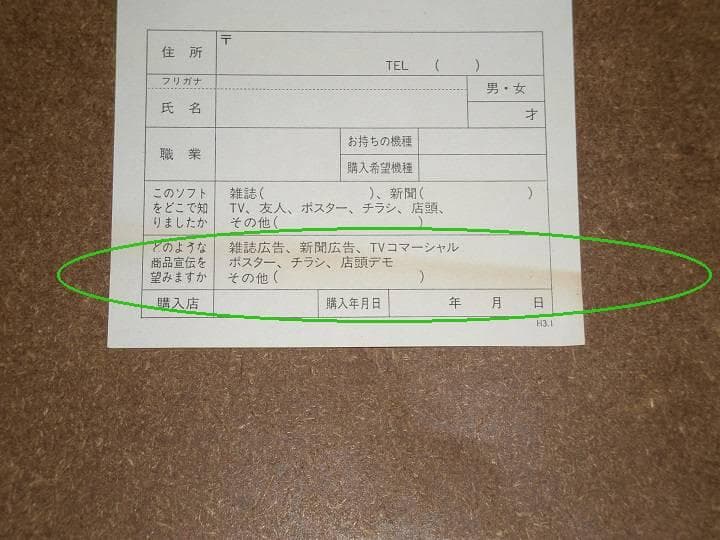 住所 〒
TEL ( )
フリガナ
氏名 男・女
才
職業 お持ちの機種
購入希望機種
このソフト 雑誌( )、新聞( )
をどこで知 TV、友人、ポスター、チラシ、店頭、
りましたか その他( )
どのような 雑誌広告、新聞広告、TVコマーシャル
商品宣伝を ポスター、チラシ、店頭デモ
望みますか その他( )
購入店 購入年月日 年 月 日
H3.1